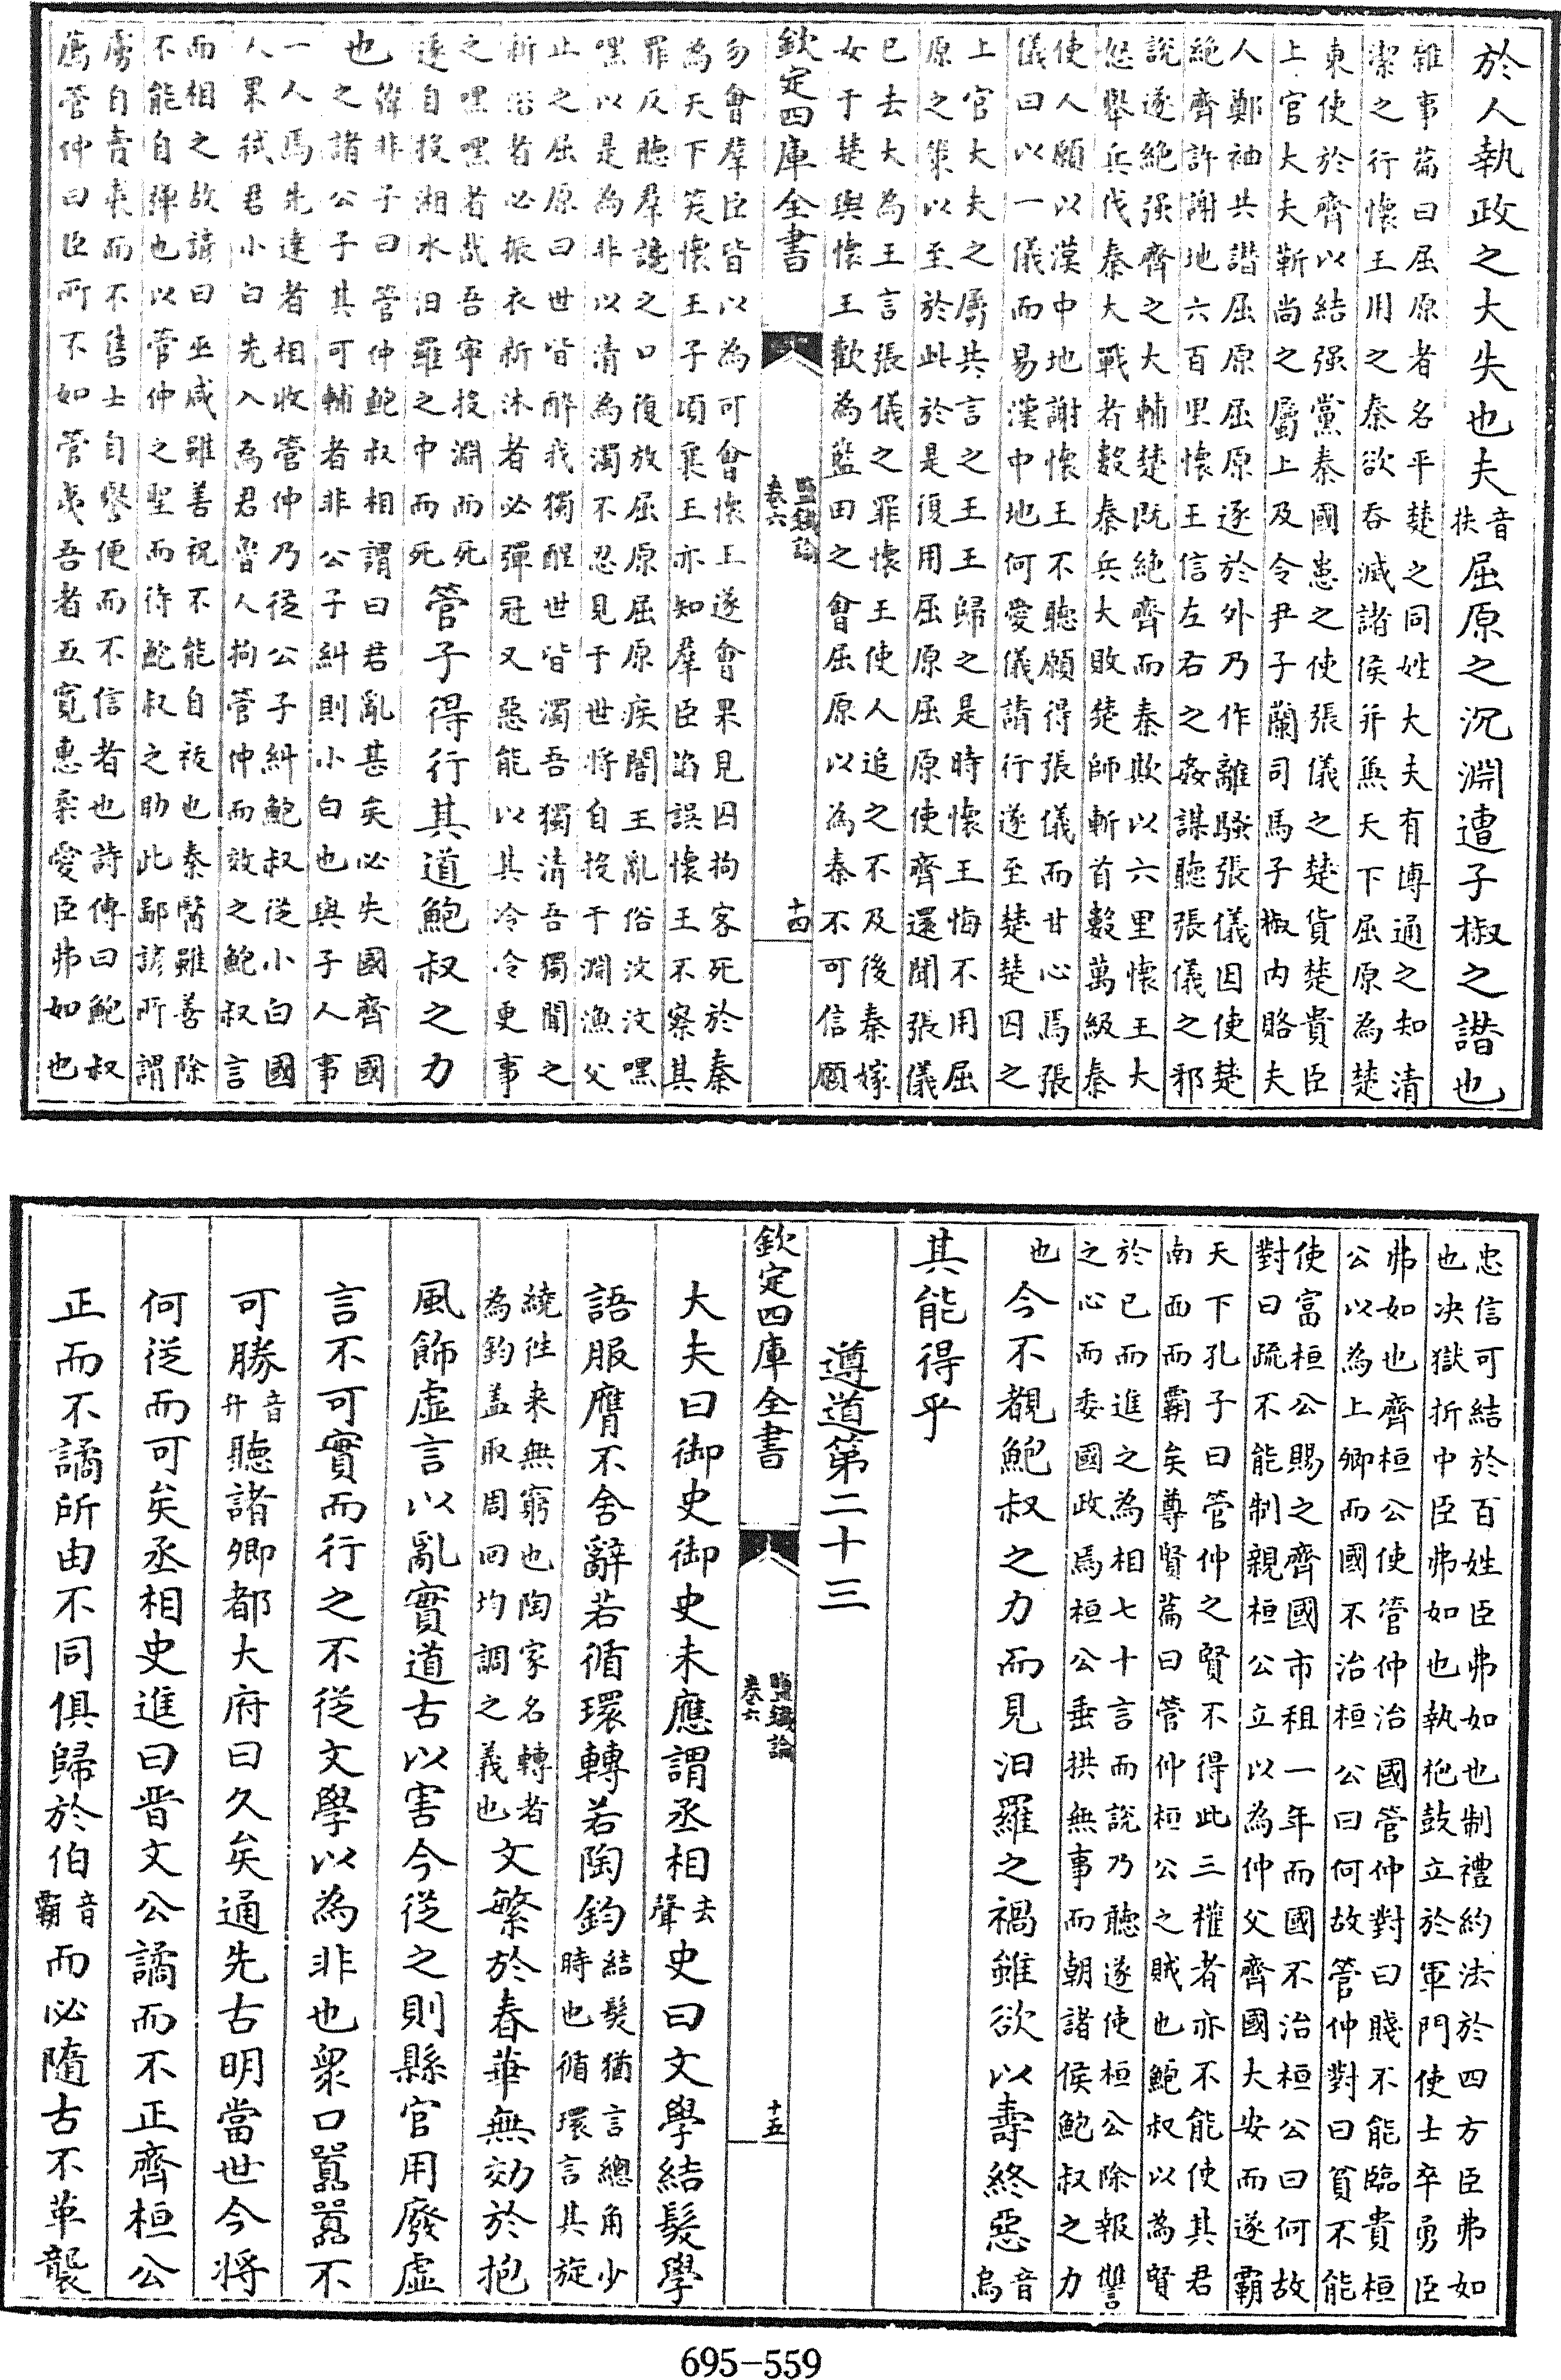 於人執政之大失也夫音扶屈原之沉淵遭子椒之譖也
雜事篇曰屈原者名平楚之同姓大夫有博通之知清
潔之行懷王用之秦欲吞滅諸侯并兼天下屈原為楚
東使於齊以結强黨秦國患之使張儀之楚貨楚貴臣
上官大夫靳尚之屬上及令尹子蘭司馬子椒内賂夫
人鄭袖共譖屈原屈原逐於外乃作離騷張儀因使楚
絶齊許謝地六百里懷王信左右之姦謀聽張儀之邪
說遂絶强齊之大輔楚既絶齊而秦欺以六里懷王大
怒舉兵伐秦大戰者數秦兵大敗楚師斬首數萬級秦
使人願以漢中地謝懷王不聽願得張儀而甘心焉張
儀曰以一儀而易漢中地何愛儀請行遂至楚楚囚之
上官大夫之屬共言之王王歸之是時懷王悔不用屈
原之策以至於此於是復用屈原屈原使齊還聞張儀
已去大為王言張儀之罪懷王使人追之不及後秦嫁
女于楚與懷王歡為藍田之會屈原以為秦不可信願
欽定四庫全書
鹽鐵論
卷六
十四
勿會羣臣皆以為可會懷王遂會果見囚拘客死於秦
為天下笑懷王子頃襄王亦知羣臣諂誤懷王不察其
罪反聽羣讒之口復放屈原屈原疾闇王亂俗汶汶嘿
嘿以是為非以清為濁不忍見于世將自投于淵漁父
止之屈原曰世皆醉我獨醒世皆濁吾獨清吾獨聞之
新浴者必振衣新沐者必彈冠又惡能以其冷冷更事
之嘿嘿者哉吾寧投淵而死
遂自投湘水汨羅之中而死
管子得行其道鮑叔之力
也
韓非子曰管仲鮑叔相謂曰君亂甚矣必失國齊國
之諸公子其可輔者非公子糾則小白也與子人事
一人焉先達者相收管仲乃從公子糾鮑叔從小白國
人果弑君小白先入為君魯人拘管仲而效之鮑叔言
而相之故諺曰巫咸雖善祝不能自袚也秦醫雖善除
不能自彈也以管仲之聖而待鮑叔之助此鄙諺所謂
虜自責裘而不售士自譽便而不信者也詩傳曰鮑叔
薦管仲曰臣所不如管夷吾者五寛惠柔愛臣弗如也
忠信可結於百姓臣弗如也制禮約法於四方臣弗如
也决獄折中臣弗如也執枹鼓立於軍門使士卒勇臣
弗如也齊桓公使管仲治國管仲對曰賤不能臨貴桓
公以為上卿而國不治桓公曰何故管仲對曰貧不能
使富桓公賜之齊國市租一年而國不治桓公曰何故
對曰疏不能制親桓公立以為仲父齊國大安而遂霸
天下孔子曰管仲之賢不得此三權者亦不能使其君
南面而霸矣尊賢篇曰管仲桓公之賊也鮑叔以為賢
於已而進之為相七十言而說乃聽遂使桓公除報讐
之心而委國政焉桓公垂拱無事而朝諸侯鮑叔之力
也
今不覩鮑叔之力而見汨羅之禍雖欲以壽終惡音烏
其能得乎
遵道第二十三
欽定四庫全書
鹽鐵論
卷六
十五
大夫曰御史御史未應謂丞相去聲史曰文學結髮學
語服膺不舍辭若循環轉若陶鈞
結髮猶言總角少
時也循環言其旋
繞徃来無窮也陶家名轉者
為鈞盖取周回均調之義也
文繁於春華無効於抱
風飾虚言以亂實道古以害今從之則縣官用廢虚
言不可實而行之不從文學以為非也衆口囂囂不
可勝音升聽諸卿都大府曰久矣通先古明當世今將
何從而可矣丞相史進曰晋文公譎而不正齊桓公
正而不譎所由不同俱歸於伯音霸而必隨古不革襲
695-559